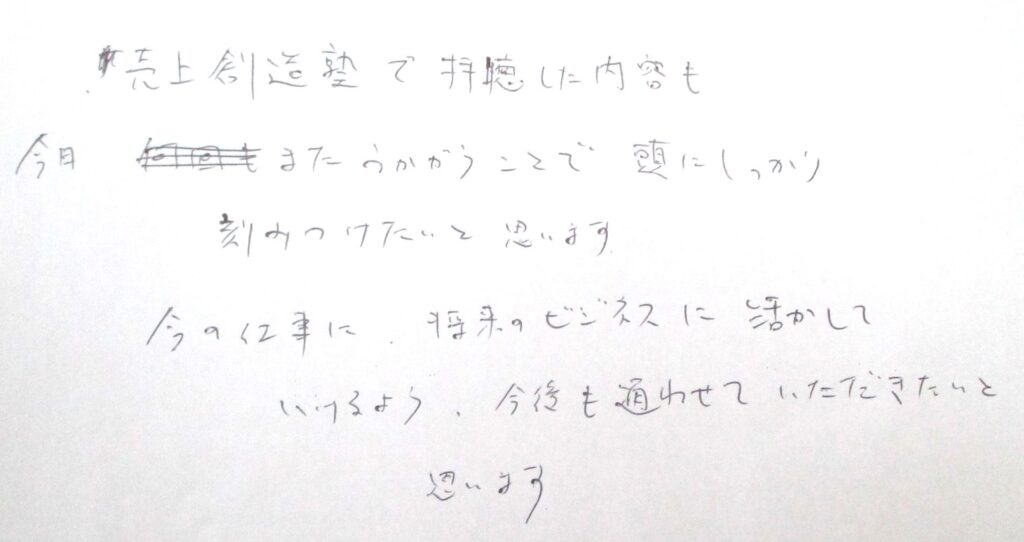 売上創造塾で拝聴した内容も
今日 またうかがうことで 頭にしっかり
刻みつけたいと思います
今の仕事に、将来のビジネスに活かして
いけるよう、今後も通わせていただきたいと
思います